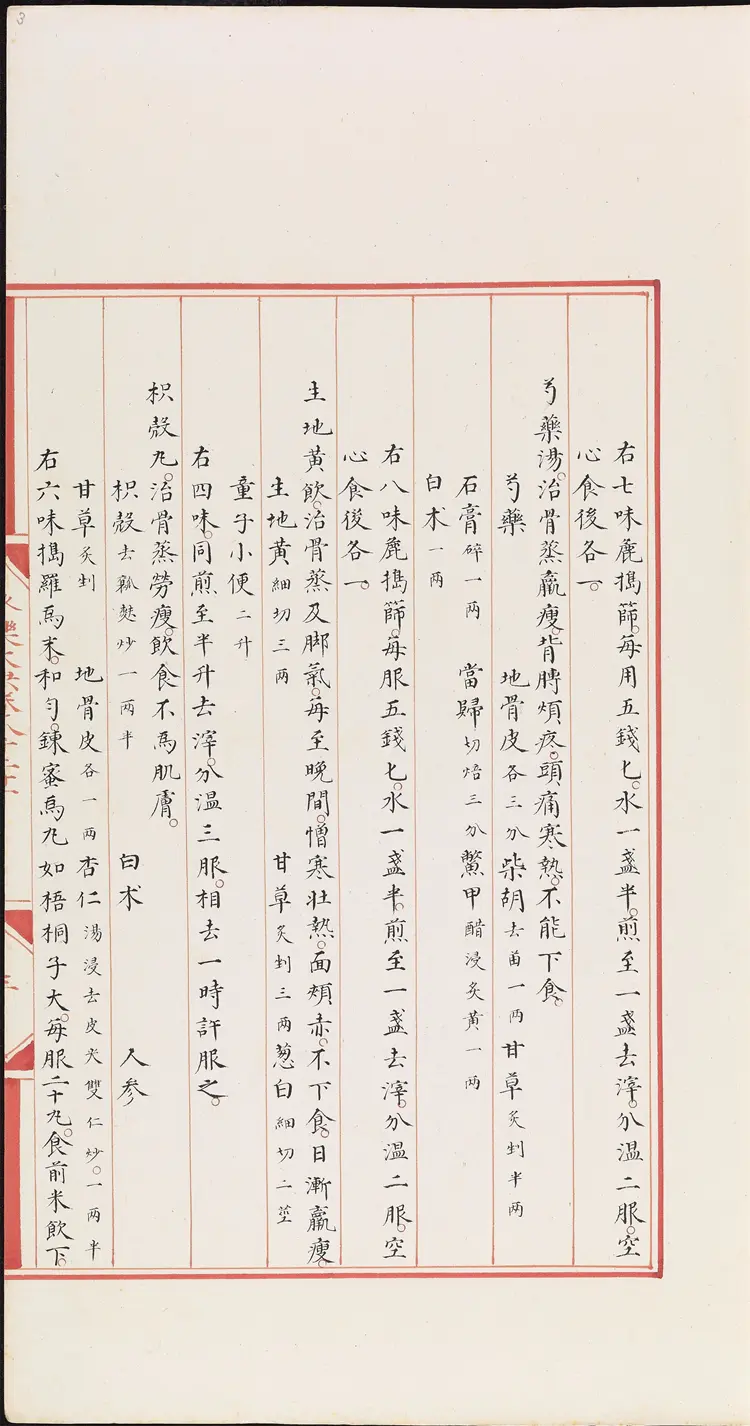 右七味麄搗篩每用五錢匕水一盞半煎至一盞去滓分温二服空
心食後各一
芍藥湯治骨蒸羸瘦背膊煩疼頭痛寒熱不能下食
芍藥 地骨皮各三分柴胡去苗一两甘草炙剉半两
石膏碎一两 當歸切焙三分鱉甲醋浸炙黄一两
白朮一两
右八味麄搗篩每服五錢匕水一盞半煎至一盞去滓分温二服空
心食後各一
生地黄飲治骨蒸及脚氣每至晚間憎寒壮熱面頰赤不下食日漸羸瘦
生地黄細切三两 甘草炙剉三两葱白細切二莖
童子小便二升
右四味同煎至半升去滓分温三服相去一時許服之
枳殼丸治骨蒸勞瘦飲食不為肌膚
枳殼去瓤麩炒一两半 白朮 人参
甘草炙剉 地骨皮各一两杏仁湯浸去皮尖雙仁炒一两半
右六味搗羅為末和匀鍊蜜為丸如梧桐子大每服二十丸食前米飲下
3